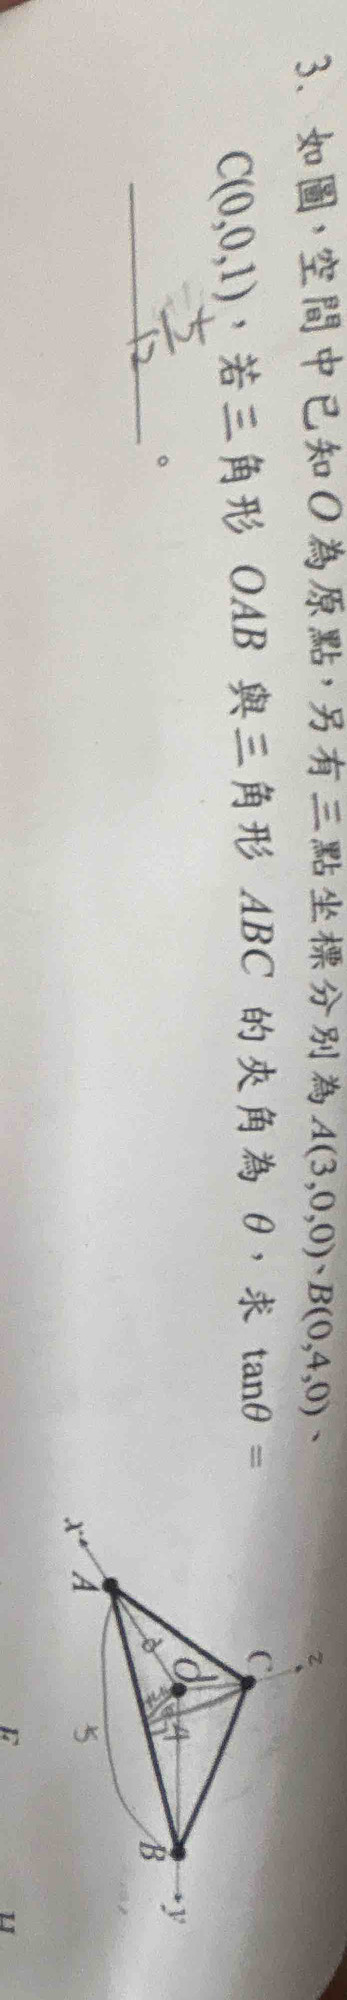 3、如圖，空間中已知O為原點，另有三點坐標分別為A(3,0,0)、B(0,4,0)、
C(0,0,1)，若三角形 OAB 與三角形 ABC 的夾角為 θ，求 tanθ =
5/12 。
z
C
O
4
B
y
3
A
x
5
F
H